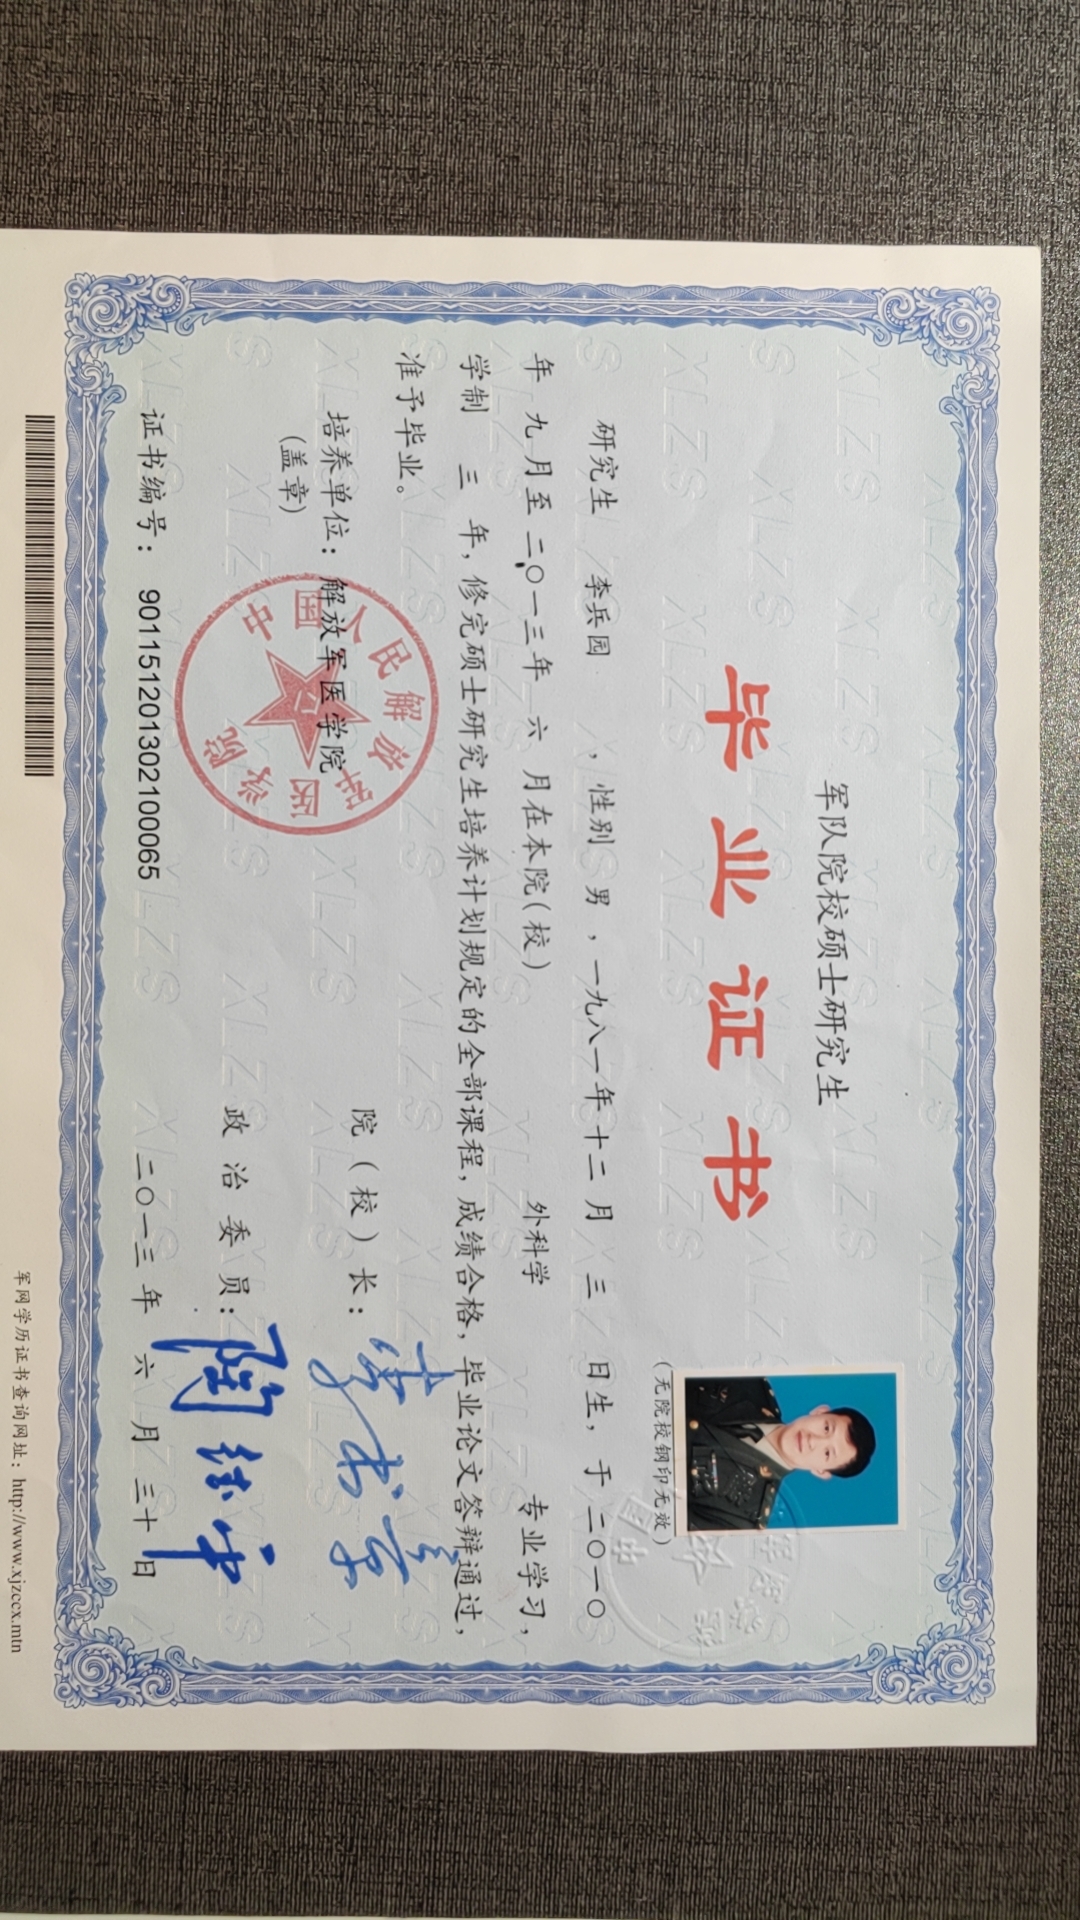 军队院校硕士研究生
毕业证书
(无院校钢印无效)
研究生 李兵园 ，性别 男 ，一九八一年十二月 三 日生，于二〇一〇
年 九月至二〇一三年 六 月在本院(校) 外科学 专业学习，
学制 三 年，修完硕士研究生培养计划规定的全部课程，成绩合格，毕业论文答辩通过，
准予毕业。
培养单位：解放军医学院
(盖章)
中国人民解放军医学院
院（校）长：
政治委员：
证书编号： 90115120130210006​5
二〇一三 年 六 月 三十 日
军网学历证书查询网址：http://www.xjzccx.mtn